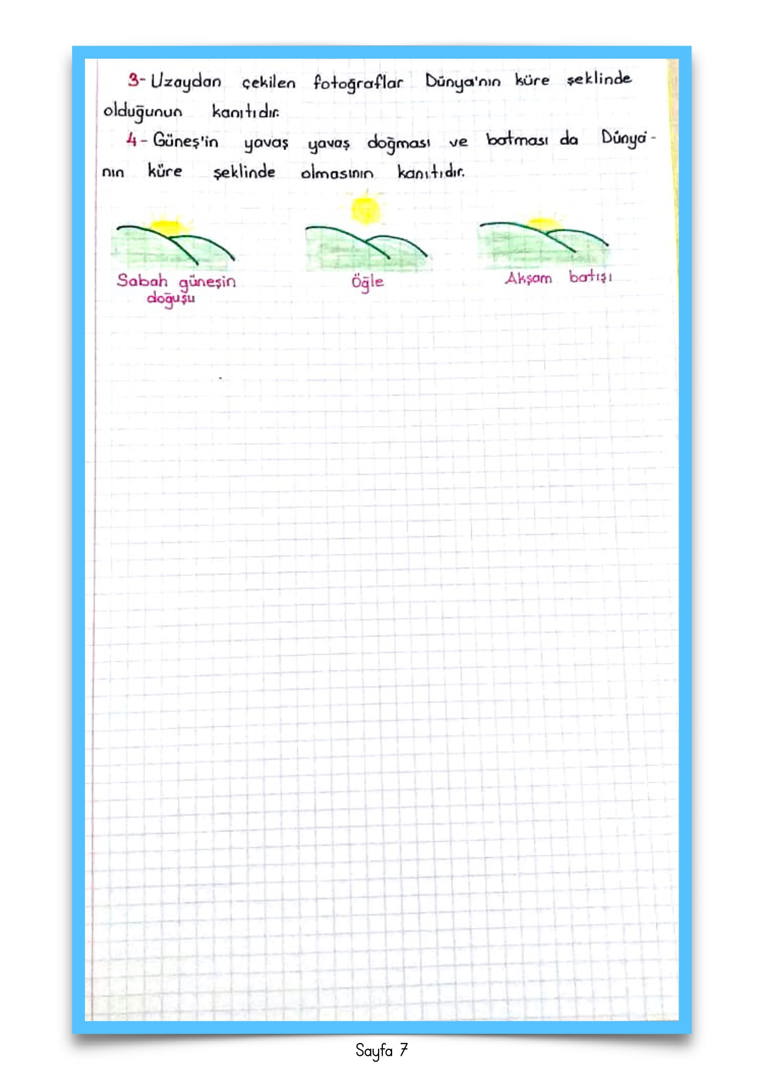 3- Uzaydan çekilen fotoğraflar Dünya'nın küre şeklinde
olduğunun kanıtıdır.
4- Güneş'in yavaş yavaş doğması ve batması da Dünya'-
nın küre şeklinde olmasının kanıtıdır.
Sabah güneşin
doğuşu
Öğle
Akşam batışı
Sayfa 7